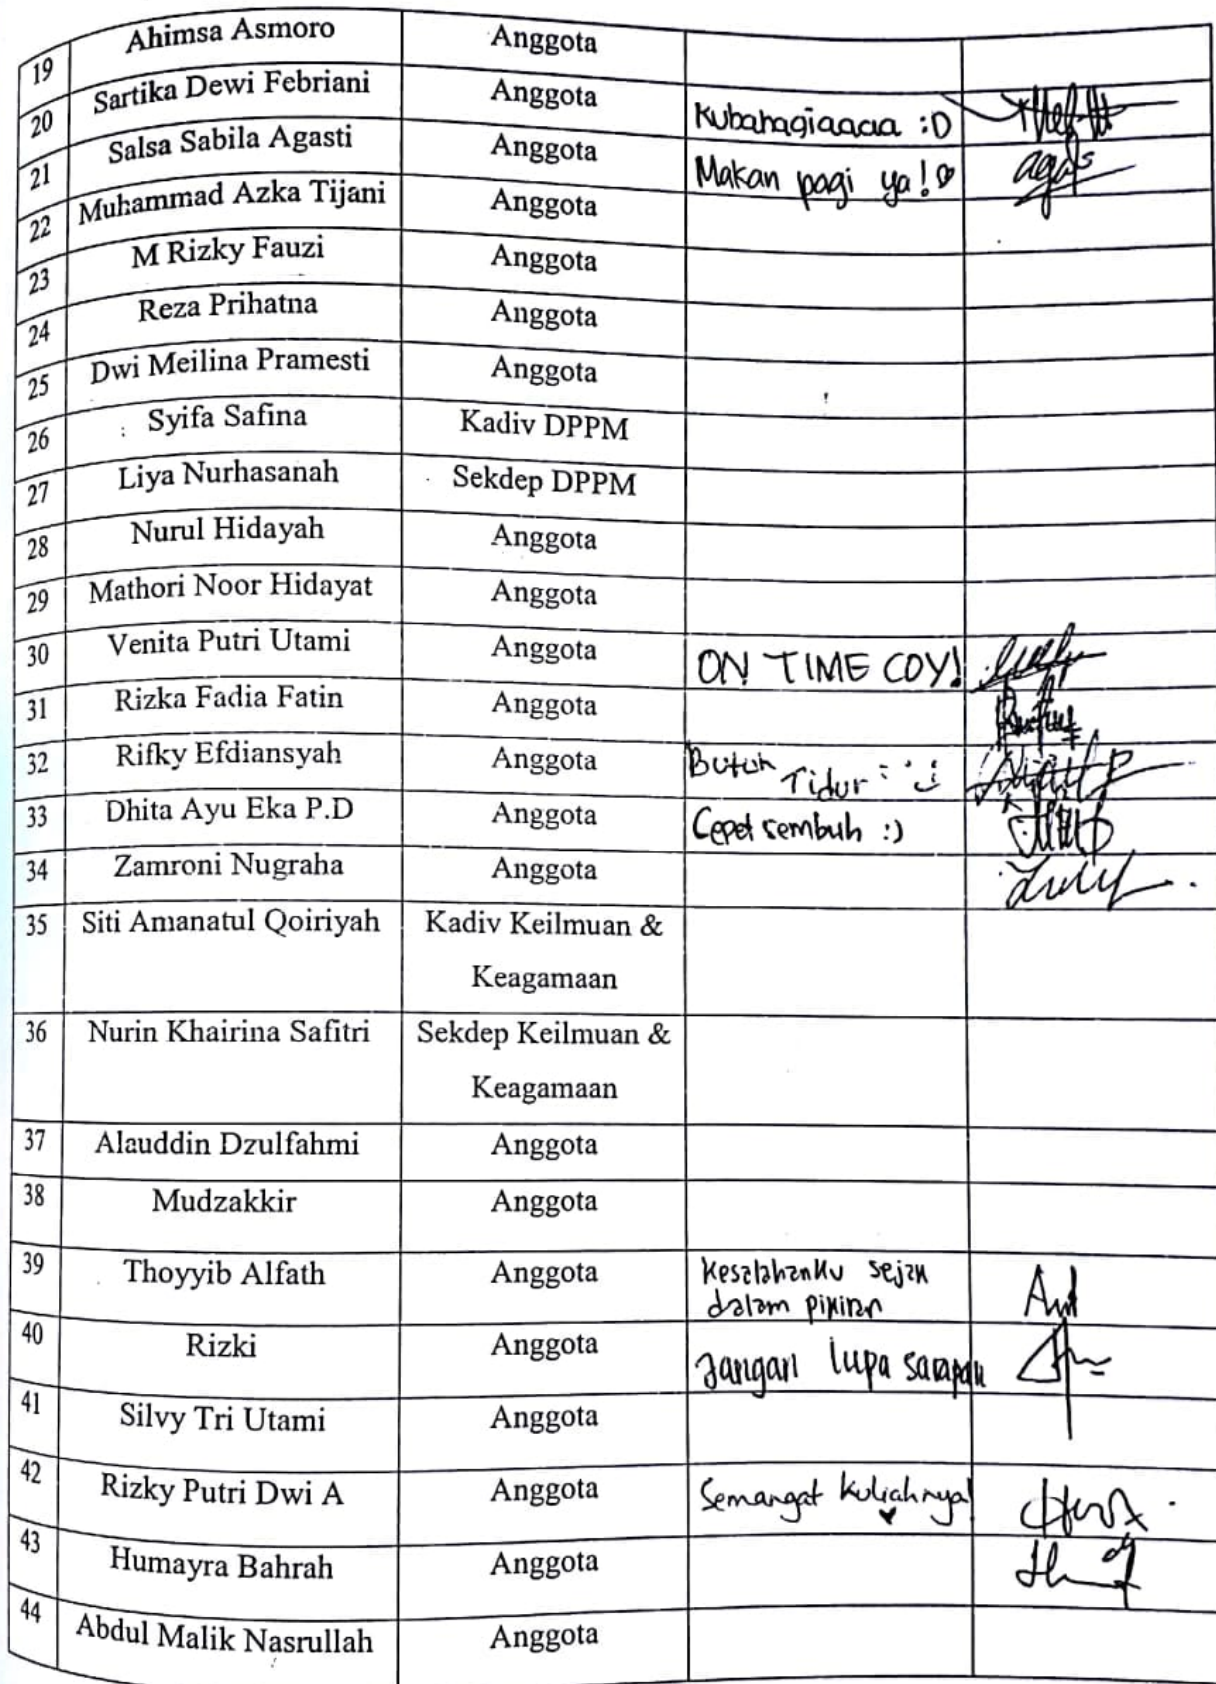 19 Ahimsa Asmoro Anggota
20 Sartika Dewi Febriani Anggota Kubahagiaaaa :D
21 Salsa Sabila Agasti Anggota Makan pagi ya!♡ agas
22 Muhammad Azka Tijani Anggota
23 M Rizky Fauzi Anggota
24 Reza Prihatna Anggota
25 Dwi Meilina Pramesti Anggota
26 Syifa Safina Kadiv DPPM
27 Liya Nurhasanah Sekdep DPPM
28 Nurul Hidayah Anggota
29 Mathori Noor Hidayat Anggota
30 Venita Putri Utami Anggota ON TIME COY!
31 Rizka Fadia Fatin Anggota
32 Rifky Efdiansyah Anggota Butuh Tidur
33 Dhita Ayu Eka P.D Anggota Cepet sembuh :)
34 Zamroni Nugraha Anggota
35 Siti Amanatul Qoiriyah Kadiv Keilmuan &
Keagamaan
36 Nurin Khairina Safitri Sekdep Keilmuan &
Keagamaan
37 Alauddin Dzulfahmi Anggota
38 Mudzakkir Anggota
39 Thoyyib Alfath Anggota Kesalahanku sejak
dalam pikiran
40 Rizki Anggota Jangan lupa sarapan
41 Silvy Tri Utami Anggota
42 Rizky Putri Dwi A Anggota Semangat kuliahnya! ♥
43 Humayra Bahrah Anggota
44 Abdul Malik Nasrullah Anggota